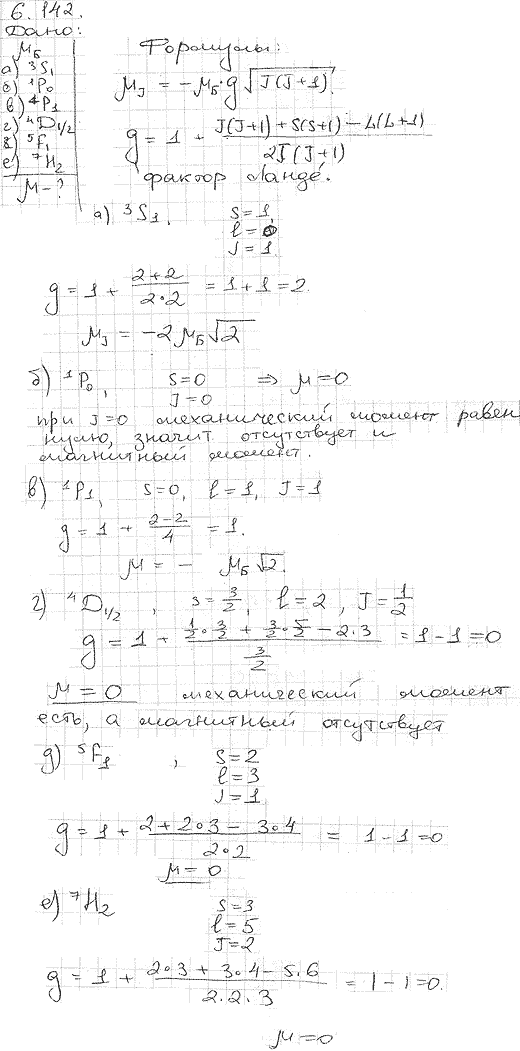 6.142.
Дано:
μБ
а) ³S₁
б) ¹P₀
в) ⁴P₁
г) ⁴D₁/₂
д) ⁵F₁
е) ⁷H₂
μ - ?
Формулы:
μJ = -μБ·g √(J(J+1))
g = 1 + (J(J+1) + S(S+1) - L(L+1)) / (2J(J+1))
фактор Ландé.
а) ³S₁, S=1,
l=0
J=1.
g = 1 + (2+2)/(2·2) = 1+1=2.
μJ = -2μБ√2
б) ¹P₀, S=0 ⇒ μ=0
J=0
при J=0 механический момент равен
нулю, значит отсутствует и
магнитный момент.
в) ¹P₁, S=0, l=1, J=1
g = 1 + (2-2)/4 = 1.
μ = - μБ√2.
г) ⁴D₁/₂, s=3/2, l=2, J=1/2
g = 1 + (1/2·3/2 + 3/2·5/2 - 2·3)/(3/2) = 1-1=0
μ=0 механический момент
есть, а магнитный отсутствует
д) ⁵F₁, S=2
l=3
J=1
g = 1 + (2+2·3 - 3·4)/(2·2) = 1-1=0
μ=0
е) ⁷H₂ S=3
l=5
J=2
g = 1 + (2·3 + 3·4 - 5·6)/(2·2·3) = 1-1=0.
μ=0